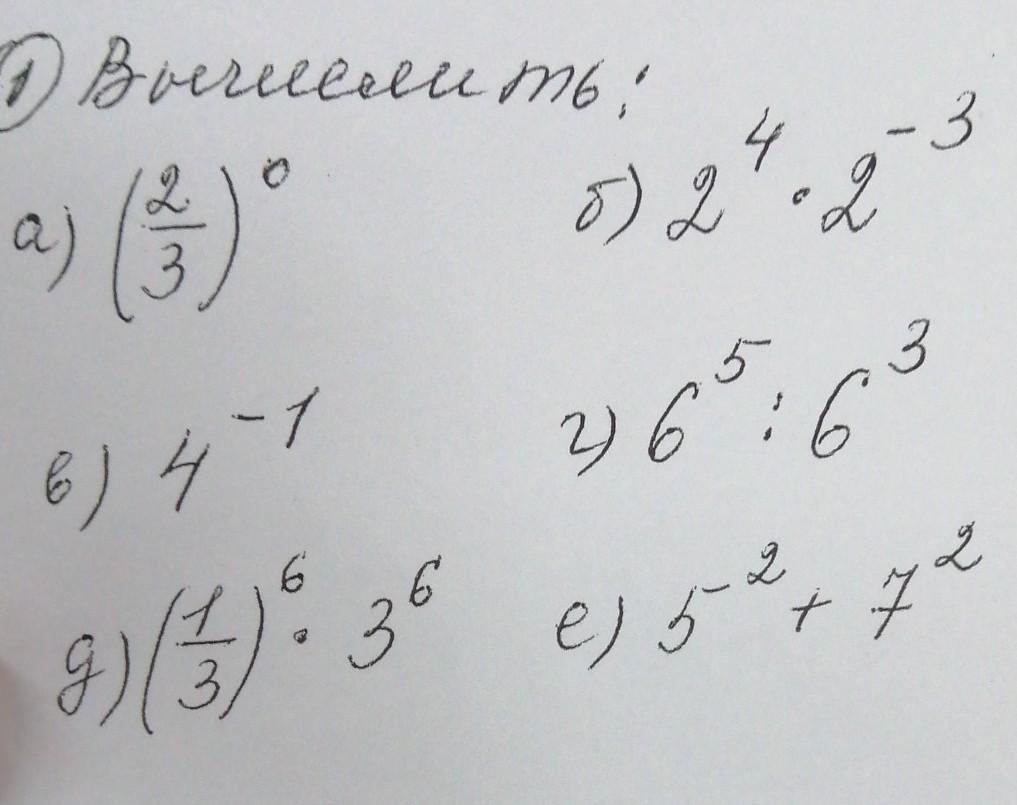 1) Вычислить:
а) (2/3)⁰ б) 2⁴ · 2⁻³
в) 4⁻¹ г) 6⁵ : 6³
д) (1/3)⁶ · 3⁶ е) 5² + 7²